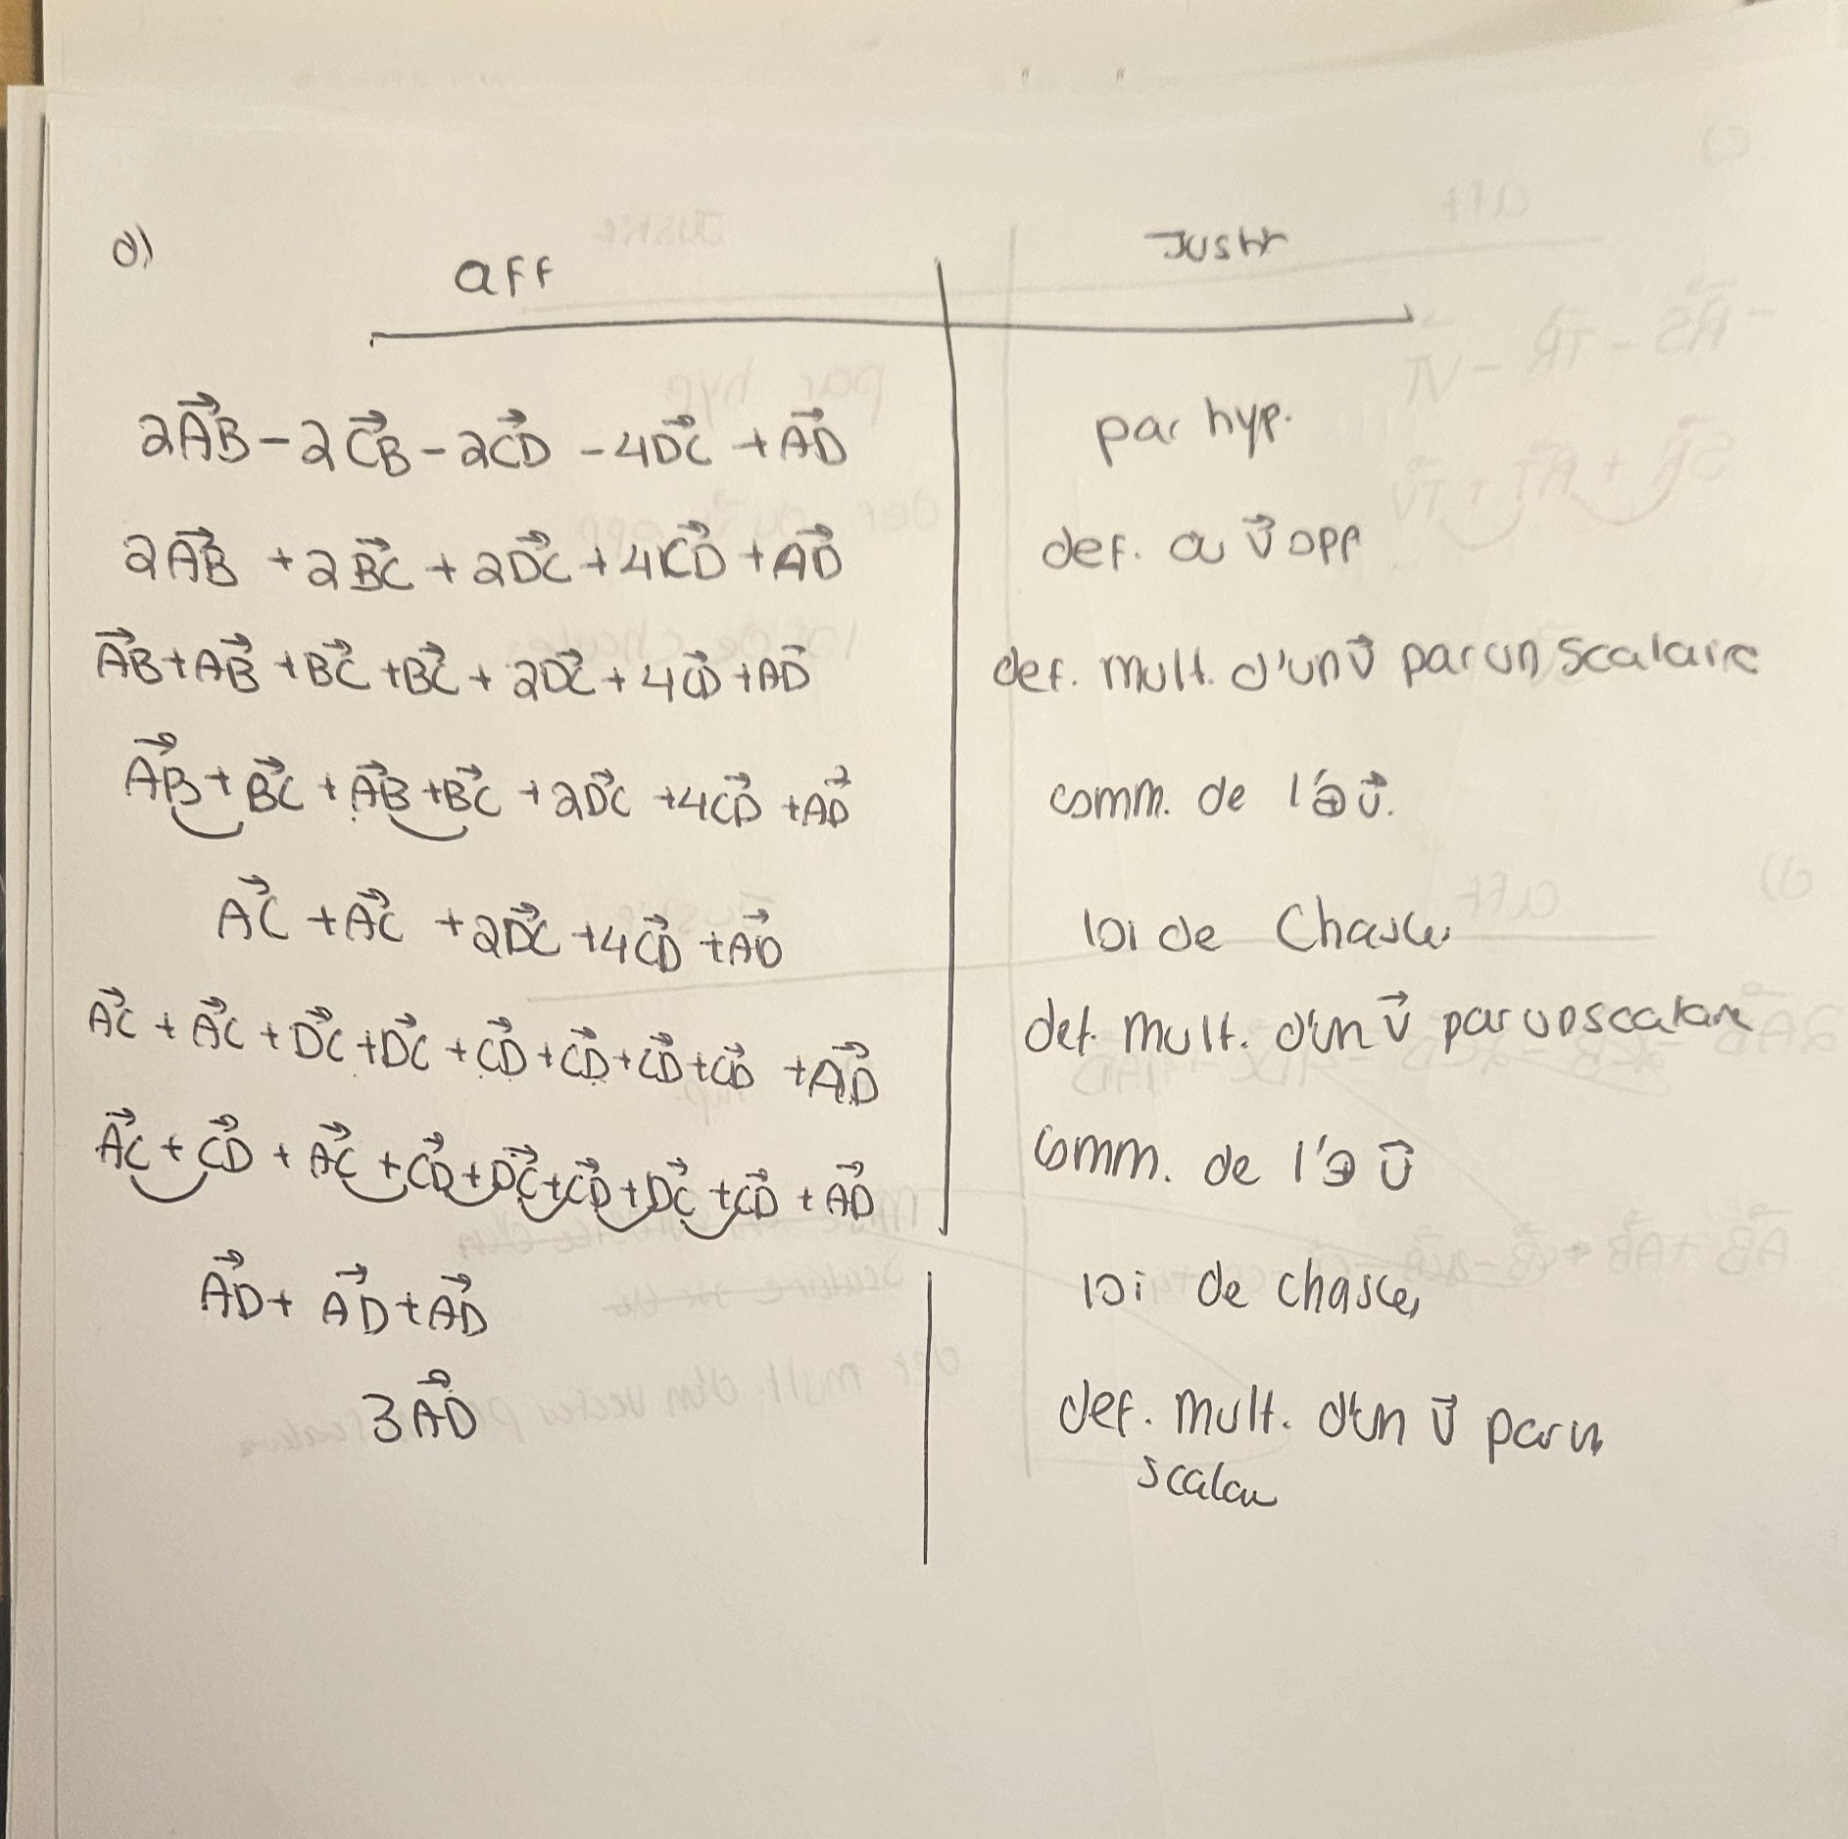 d)
aff
Justif
2A⃗B - 2C⃗B - 2C⃗D - 4D⃗C + A⃗D
par hyp.
2A⃗B + 2B⃗C + 2D⃗C + 4C⃗D + A⃗D
def. du v⃗ opp
A⃗B + A⃗B + B⃗C + B⃗C + 2D⃗C + 4C⃗D + A⃗D
def. mult. d'un v⃗ par un scalaire
A⃗B + B⃗C + A⃗B + B⃗C + 2D⃗C + 4C⃗D + A⃗D
comm. de l'⊕ v⃗.
A⃗C + A⃗C + 2D⃗C + 4C⃗D + A⃗D
loi de Chasles
A⃗C + A⃗C + D⃗C + D⃗C + C⃗D + C⃗D + C⃗D + C⃗D + A⃗D
def. mult. d'un v⃗ par un scalaire
A⃗C + C⃗D + A⃗C + C⃗D + D⃗C + C⃗D + D⃗C + C⃗D + A⃗D
comm. de l'⊕ v⃗
A⃗D + A⃗D + A⃗D
loi de chasles
3A⃗D
def. mult. d'un v⃗ par un
scalaire